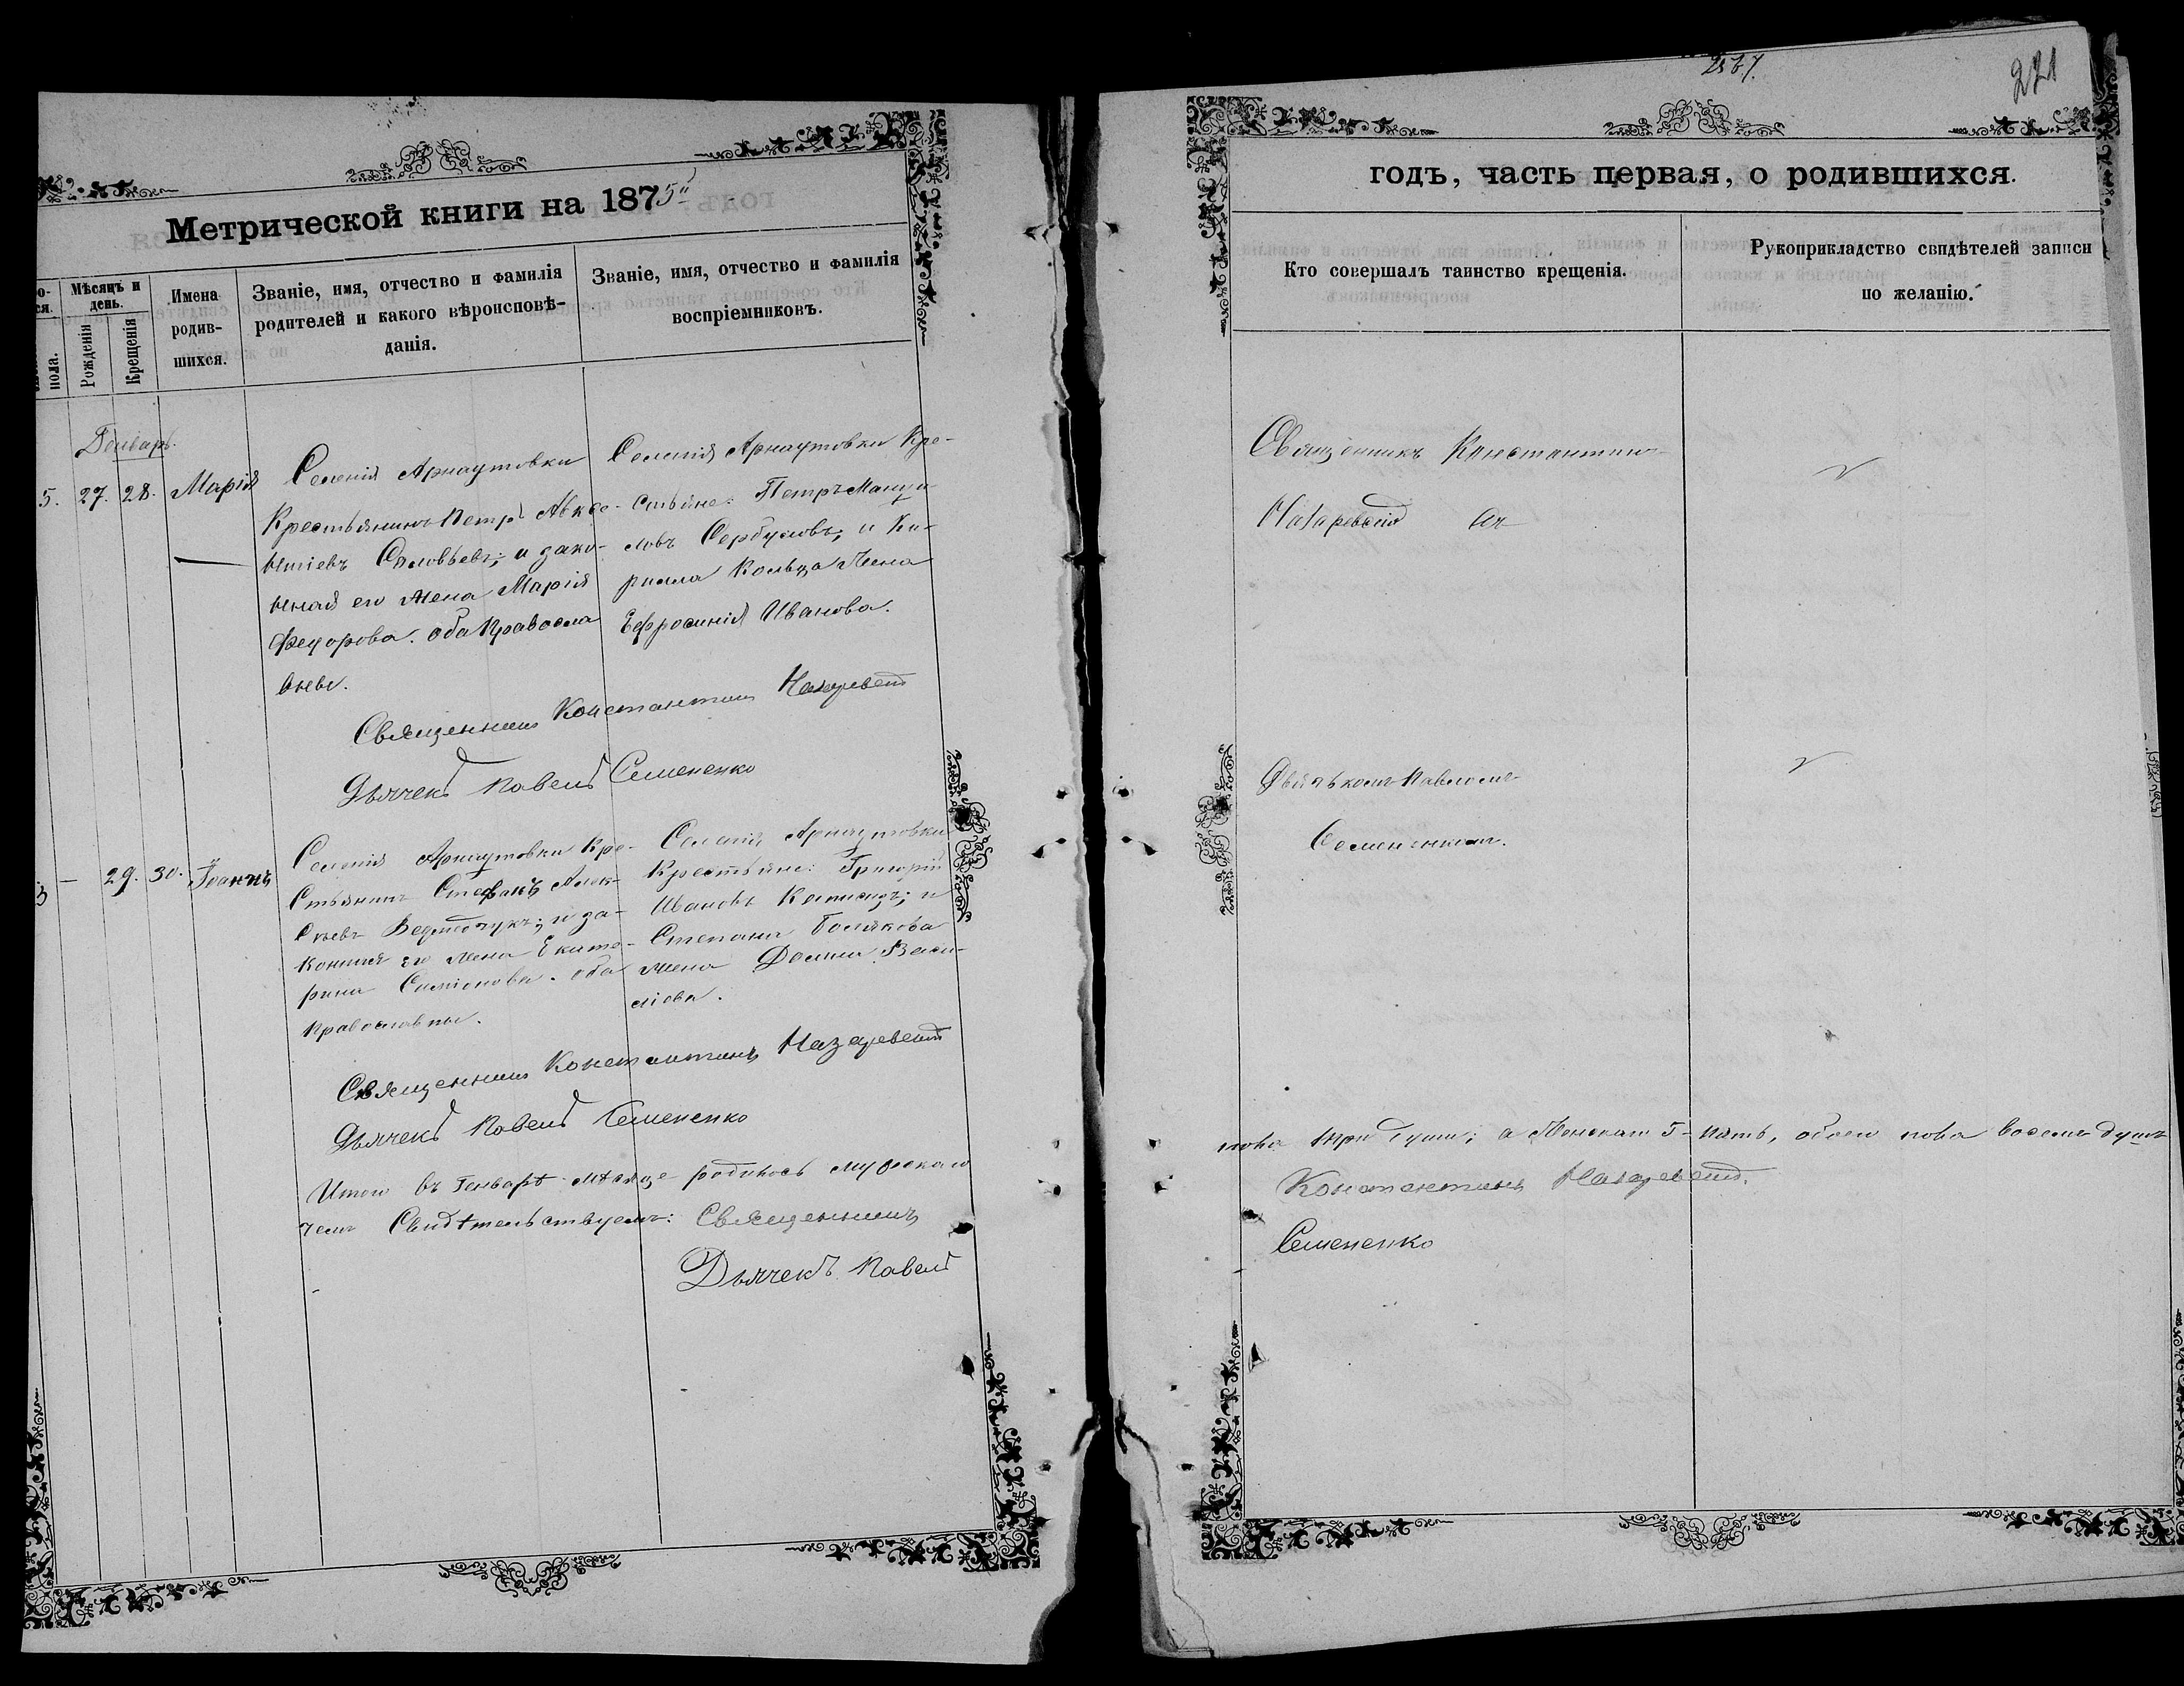 221
Метрической книги на 1875й
годъ, часть первая, о родившихся.
Мѣсяцъ и день.
пола.
Рожденія
Крещенія
Имена
родив-
шихся.
Званіе, имя, отчество и фамилія
родителей и какого вѣроисповѣ-
данія.
Званіе, имя, отчество и фамилія
воспріемниковъ.
Кто совершалъ таинство крещенія.
Рукоприкладство свидѣтелей записи
по желанію.
Генварь.
5. 27. 28. Марія
Селенія Арнаутовки
Крестьянинъ Петръ Авксе-
нтіевъ Соловьевъ; и зако-
нная его жена Марія
Федорова. оба Правосла
вные.
Селенія Арнаутовки Кре-
стьяне: Петръ
Сербуловъ; и Ки-
рилла Кольца жена
Ефросинія Иванова.
Священникъ Константинъ
Назаревскій
Священникъ Константинъ Назаревскій
Дьячекъ Павелъ Семененко
3 — 29. 30. Іоаннъ
Селенія Арнаутовки Кре-
стьянинъ Стефанъ Алек-
сѣевъ; и за-
конная его жена Екате-
рина Симіонова. оба
православны.
Селенія Арнаутовки
Крестьяне: Григорій
Ивановъ; и
Степана Болякова
жена Домна Васи-
ліева.
Дьячькомъ Павломъ
Семененкомъ.
Священникъ Константинъ Назаревскій
Дьячекъ Павелъ Семененко
Итого въ Генварѣ мѣсяце родилось мужскаго
пола три души; а Женскаго 5-пять, обоего пола восемь душъ
чемъ Свидѣтельствуемъ: Священникъ
Константинъ Назаревскій.
Дьячекъ Павелъ
Семененко